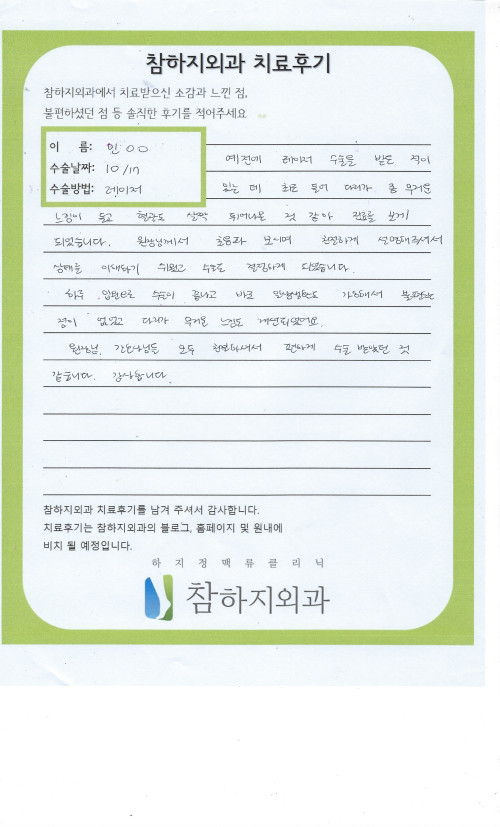 참하지외과 치료후기
참하지외과에서 치료받으신 소감과 느낀 점,
불편하셨던 점 등 솔직한 후기를 적어주세요
이 름: 민○○
수술날짜: 10/17
수술방법: 레이저
예전에 레이저 수술을 받은 적이
있는 데 최근 들어 다리가 좀 무거운
느낌이 들고 혈관도 살짝 튀어나온 것 같아 진료를 보게
되었습니다. 원장님께서 초음파 보시며 친절하게 설명해주셔서
상태를 이해하기 쉬웠고 수술도 결정하게 되었습니다.
하루 입원으로 수술이 끝나고 바로 일상생활도 가능해서 불편한
점이 없었고 다리가 무거운 느낌도 개선되었어요.
원장님, 간호사님들 모두 친절하셔서 편하게 수술 받았던 것
같습니다. 감사합니다.
참하지외과 치료후기를 남겨 주셔서 감사합니다.
치료후기는 참하지외과의 블로그, 홈페이지 및 원내에
비치 될 예정입니다.
하지정맥류클리닉
참하지외과